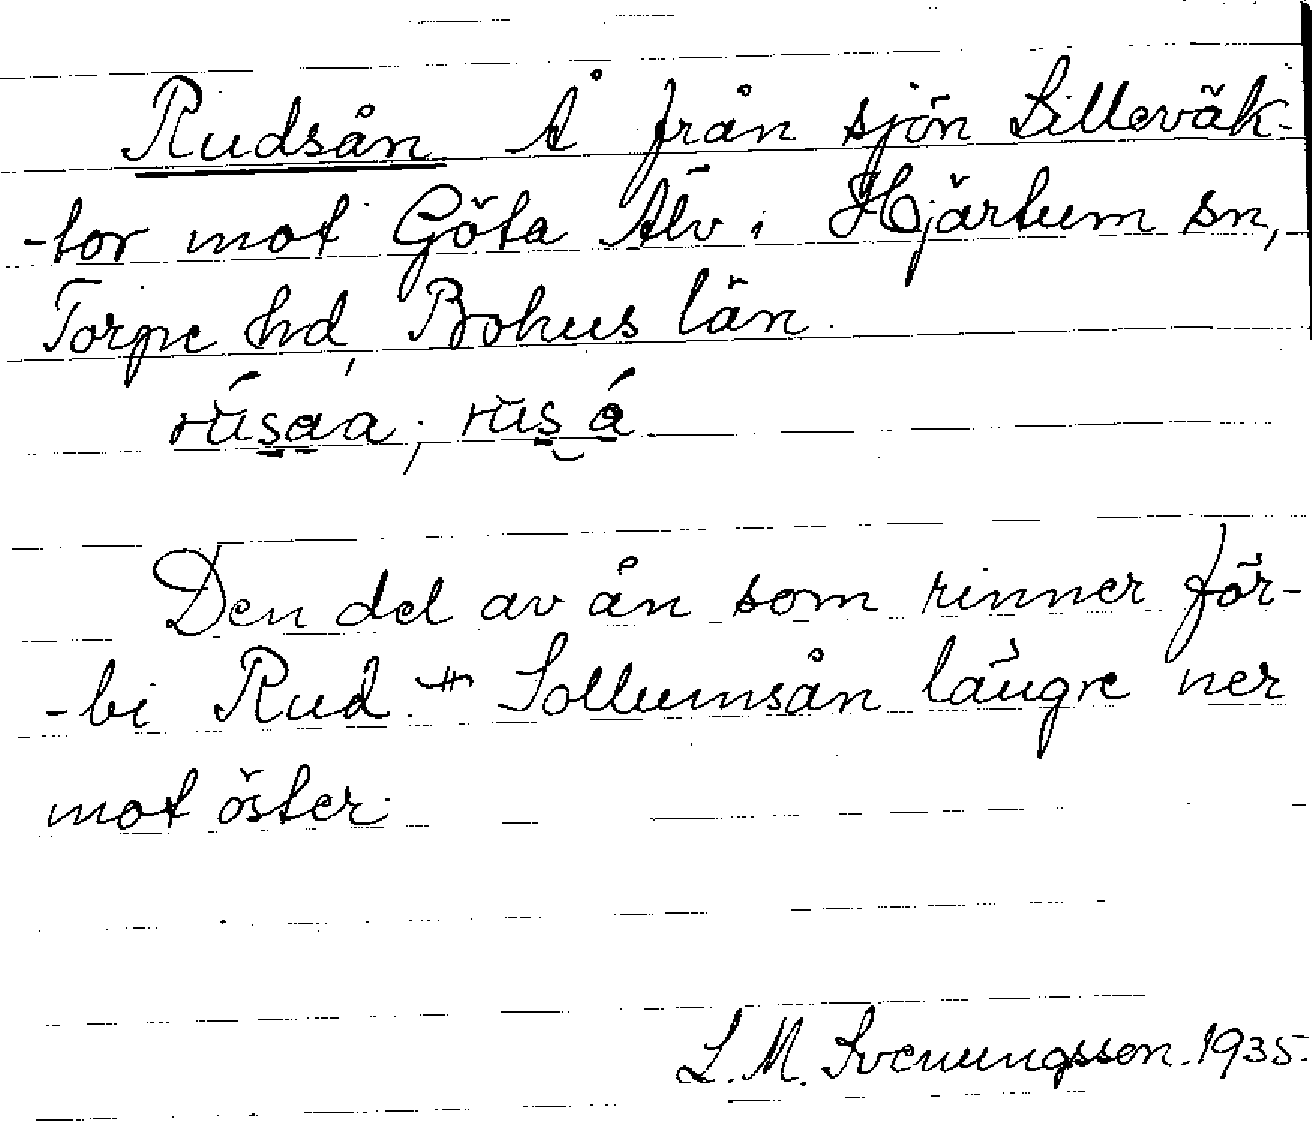 Rudsån Å från sjön Lilleväk-
-tor mot Göta Älv i Hjärtum sn,
Torpe hd, Bohus län.
rúsaa; rus á
Den del av ån som rinner för-
-bi Rud. # Sollumsån längre ner
mot öster.
L. M. Svenungsson. 1935.